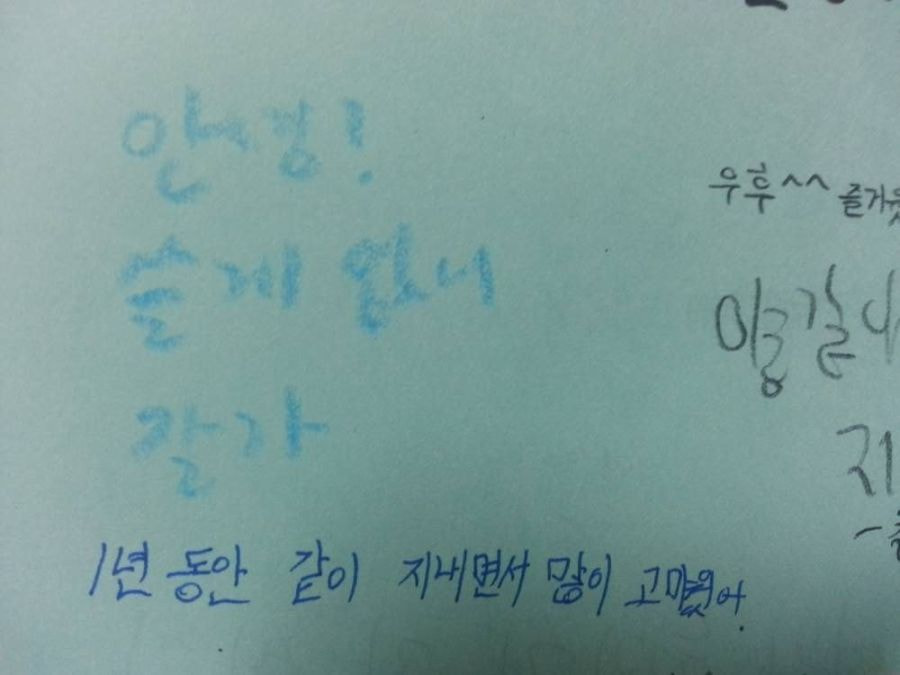 안녕!
쓸게 없으니
잘가
1년 동안 같이 지내면서 많이 고마웠어.
우후^^ 즐거웠